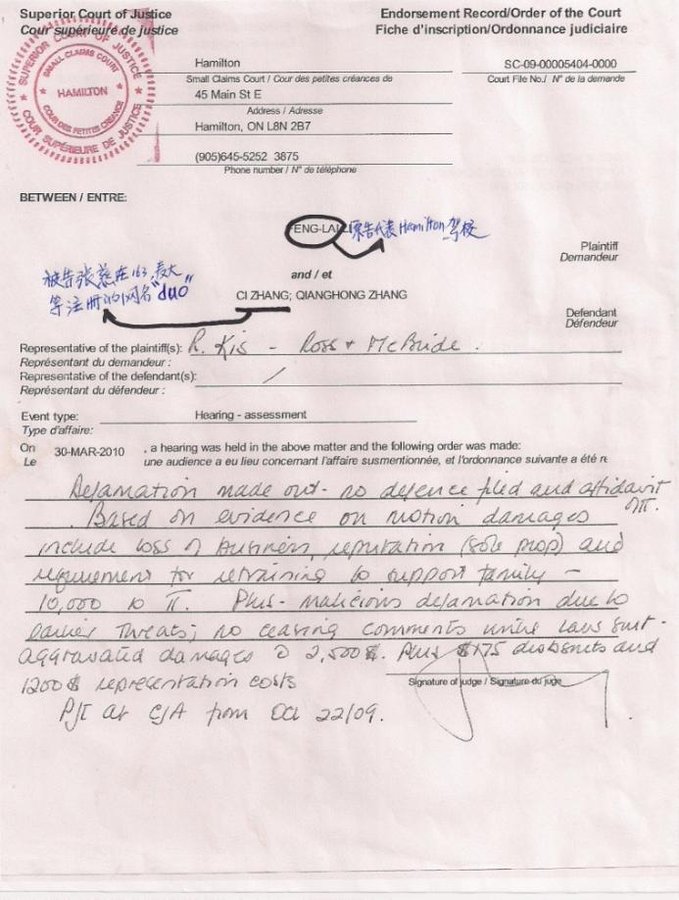 Superior Court of Justice
Cour supérieure de justice
Endorsement Record/Order of the Court
Fiche d'inscription/Ordonnance judiciaire
SUPERIOR COURT OF JUSTICE
SMALL CLAIMS COURT
HAMILTON
COUR DES PETITES CRÉANCES
COUR SUPÉRIEURE DE JUSTICE
Hamilton
SC-09-00005404-0000
Small Claims Court / Cour des petites créances de
Court File No./ N° de la demande
45 Main St E
Address / Adresse
Hamilton, ON L8N 2B7
(905)645-5252 3875
Phone number / N° de téléphone
BETWEEN / ENTRE:
FENG-LAI
原告代表Hamilton 驾校
Plaintiff
Demandeur
and / et
被告张慈在163,大
等注册的网名"duo"
CI ZHANG; QIANGHONG ZHANG
Defendant
Défendeur
Representative of the plaintiff(s): R. Kis - Ross + McBride.
Représentant du demandeur :
Representative of the defendant(s): /
Représentant du défendeur :
Event type: Hearing - assessment
Type d'affaire:
On 30-MAR-2010 , a hearing was held in the above matter and the following order was made:
Le une audience a eu lieu concernant l'affaire susmentionnée, et l'ordonnance suivante a été re
Defamation made out - no defence filed and affidavit of π.
Based on evidence on motion damages
include loss of business, reputation (sole prop) and
requirement for retraining to support family -
10,000 to π. Plus - malicious defamation due to
earlier threats; no ceasing comments until law suit -
aggravated damages 2,500$. Plus $175 disbsmts and
1200$ representation costs
Signature of judge / Signature du juge
PJI at CJA from Oct 22/09.